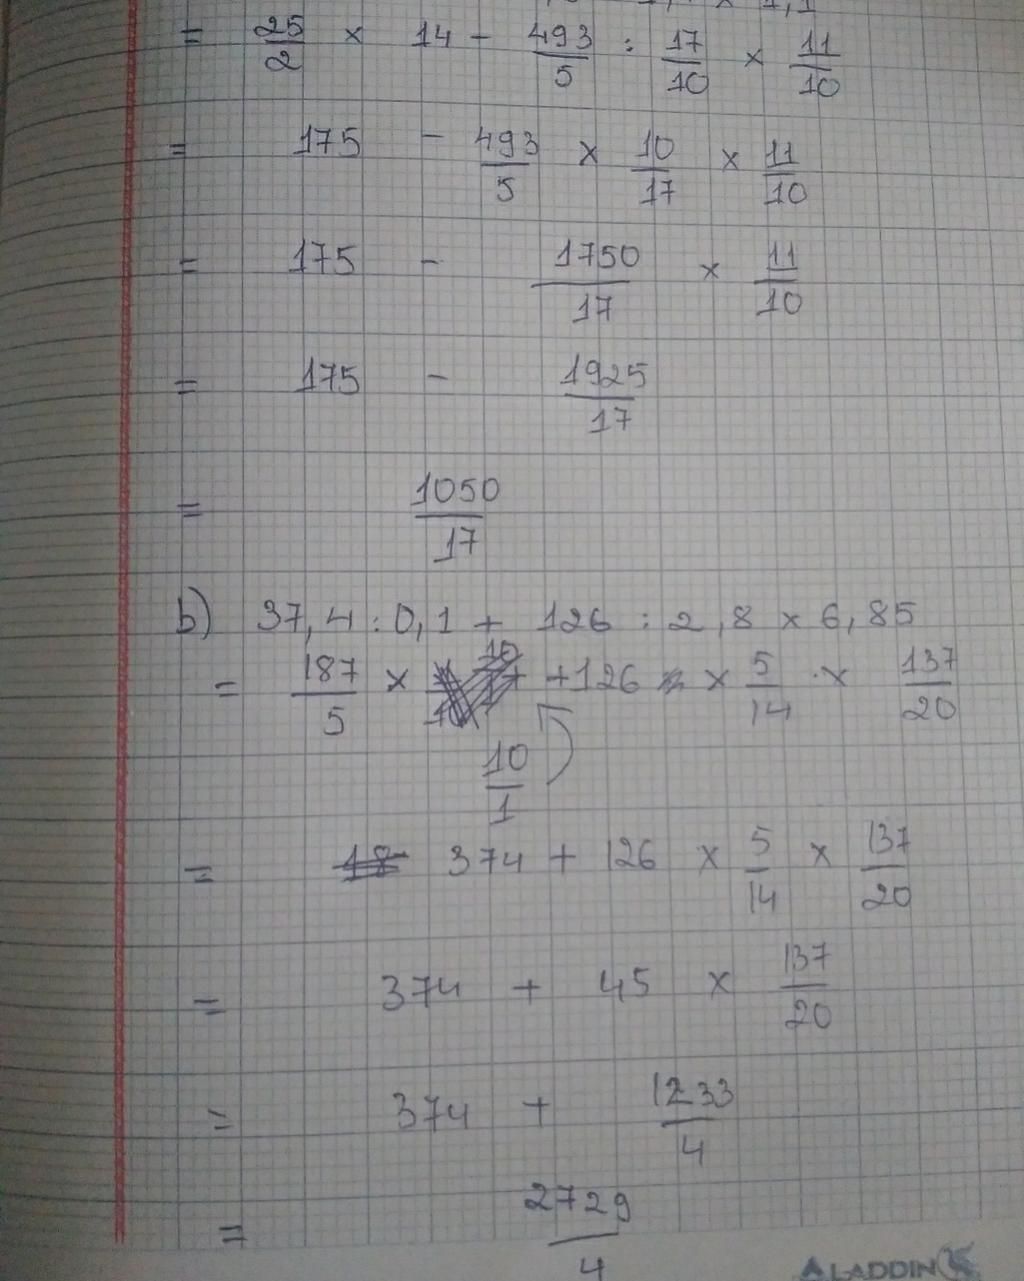 = 25/2 × 14 - 493/5 : 17/10 × 11/10
= 175 - 493/5 × 10/17 × 11/10
= 175 - 1750/17 × 11/10
= 175 - 1925/17
= 1050/17
b) 37,4 : 0,1 + 126 : 2,8 × 6,85
= 187/5 × + 126 × 5/14 × 137/20
10/1
= 374 + 126 × 5/14 × 137/20
= 374 + 45 × 137/20
= 374 + 1233/4
= 2729/4
ALADDIN